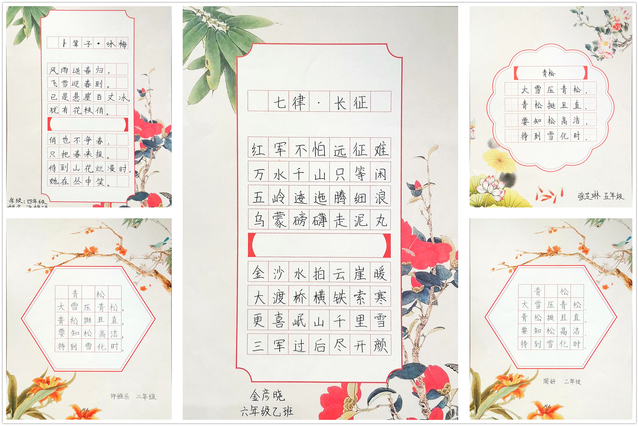 卜算子·咏梅
风雨送春归,
飞雪迎春到。
已是悬崖百丈冰,
犹有花枝俏。
俏也不争春,
只把春来报。
待到山花烂漫时,
她在丛中笑。
年级:四年级
青松
大雪压青松,
青松挺且直。
要知松高洁,
待到雪化时。
二年级
七律·长征
红军不怕远征难
万水千山只等闲
五岭逶迤腾细浪
乌蒙磅礴走泥丸
金沙水拍云崖暖
大渡桥横铁索寒
更喜岷山千里雪
三军过后尽开颜
金彦晓
六年级乙班
青松
大雪压青松,
青松挺且直。
要知松高洁,
待到雪化时。
五年级
青松
大雪压青松
青松挺且直
要知松高洁
待到雪化时。
周妍 二年级